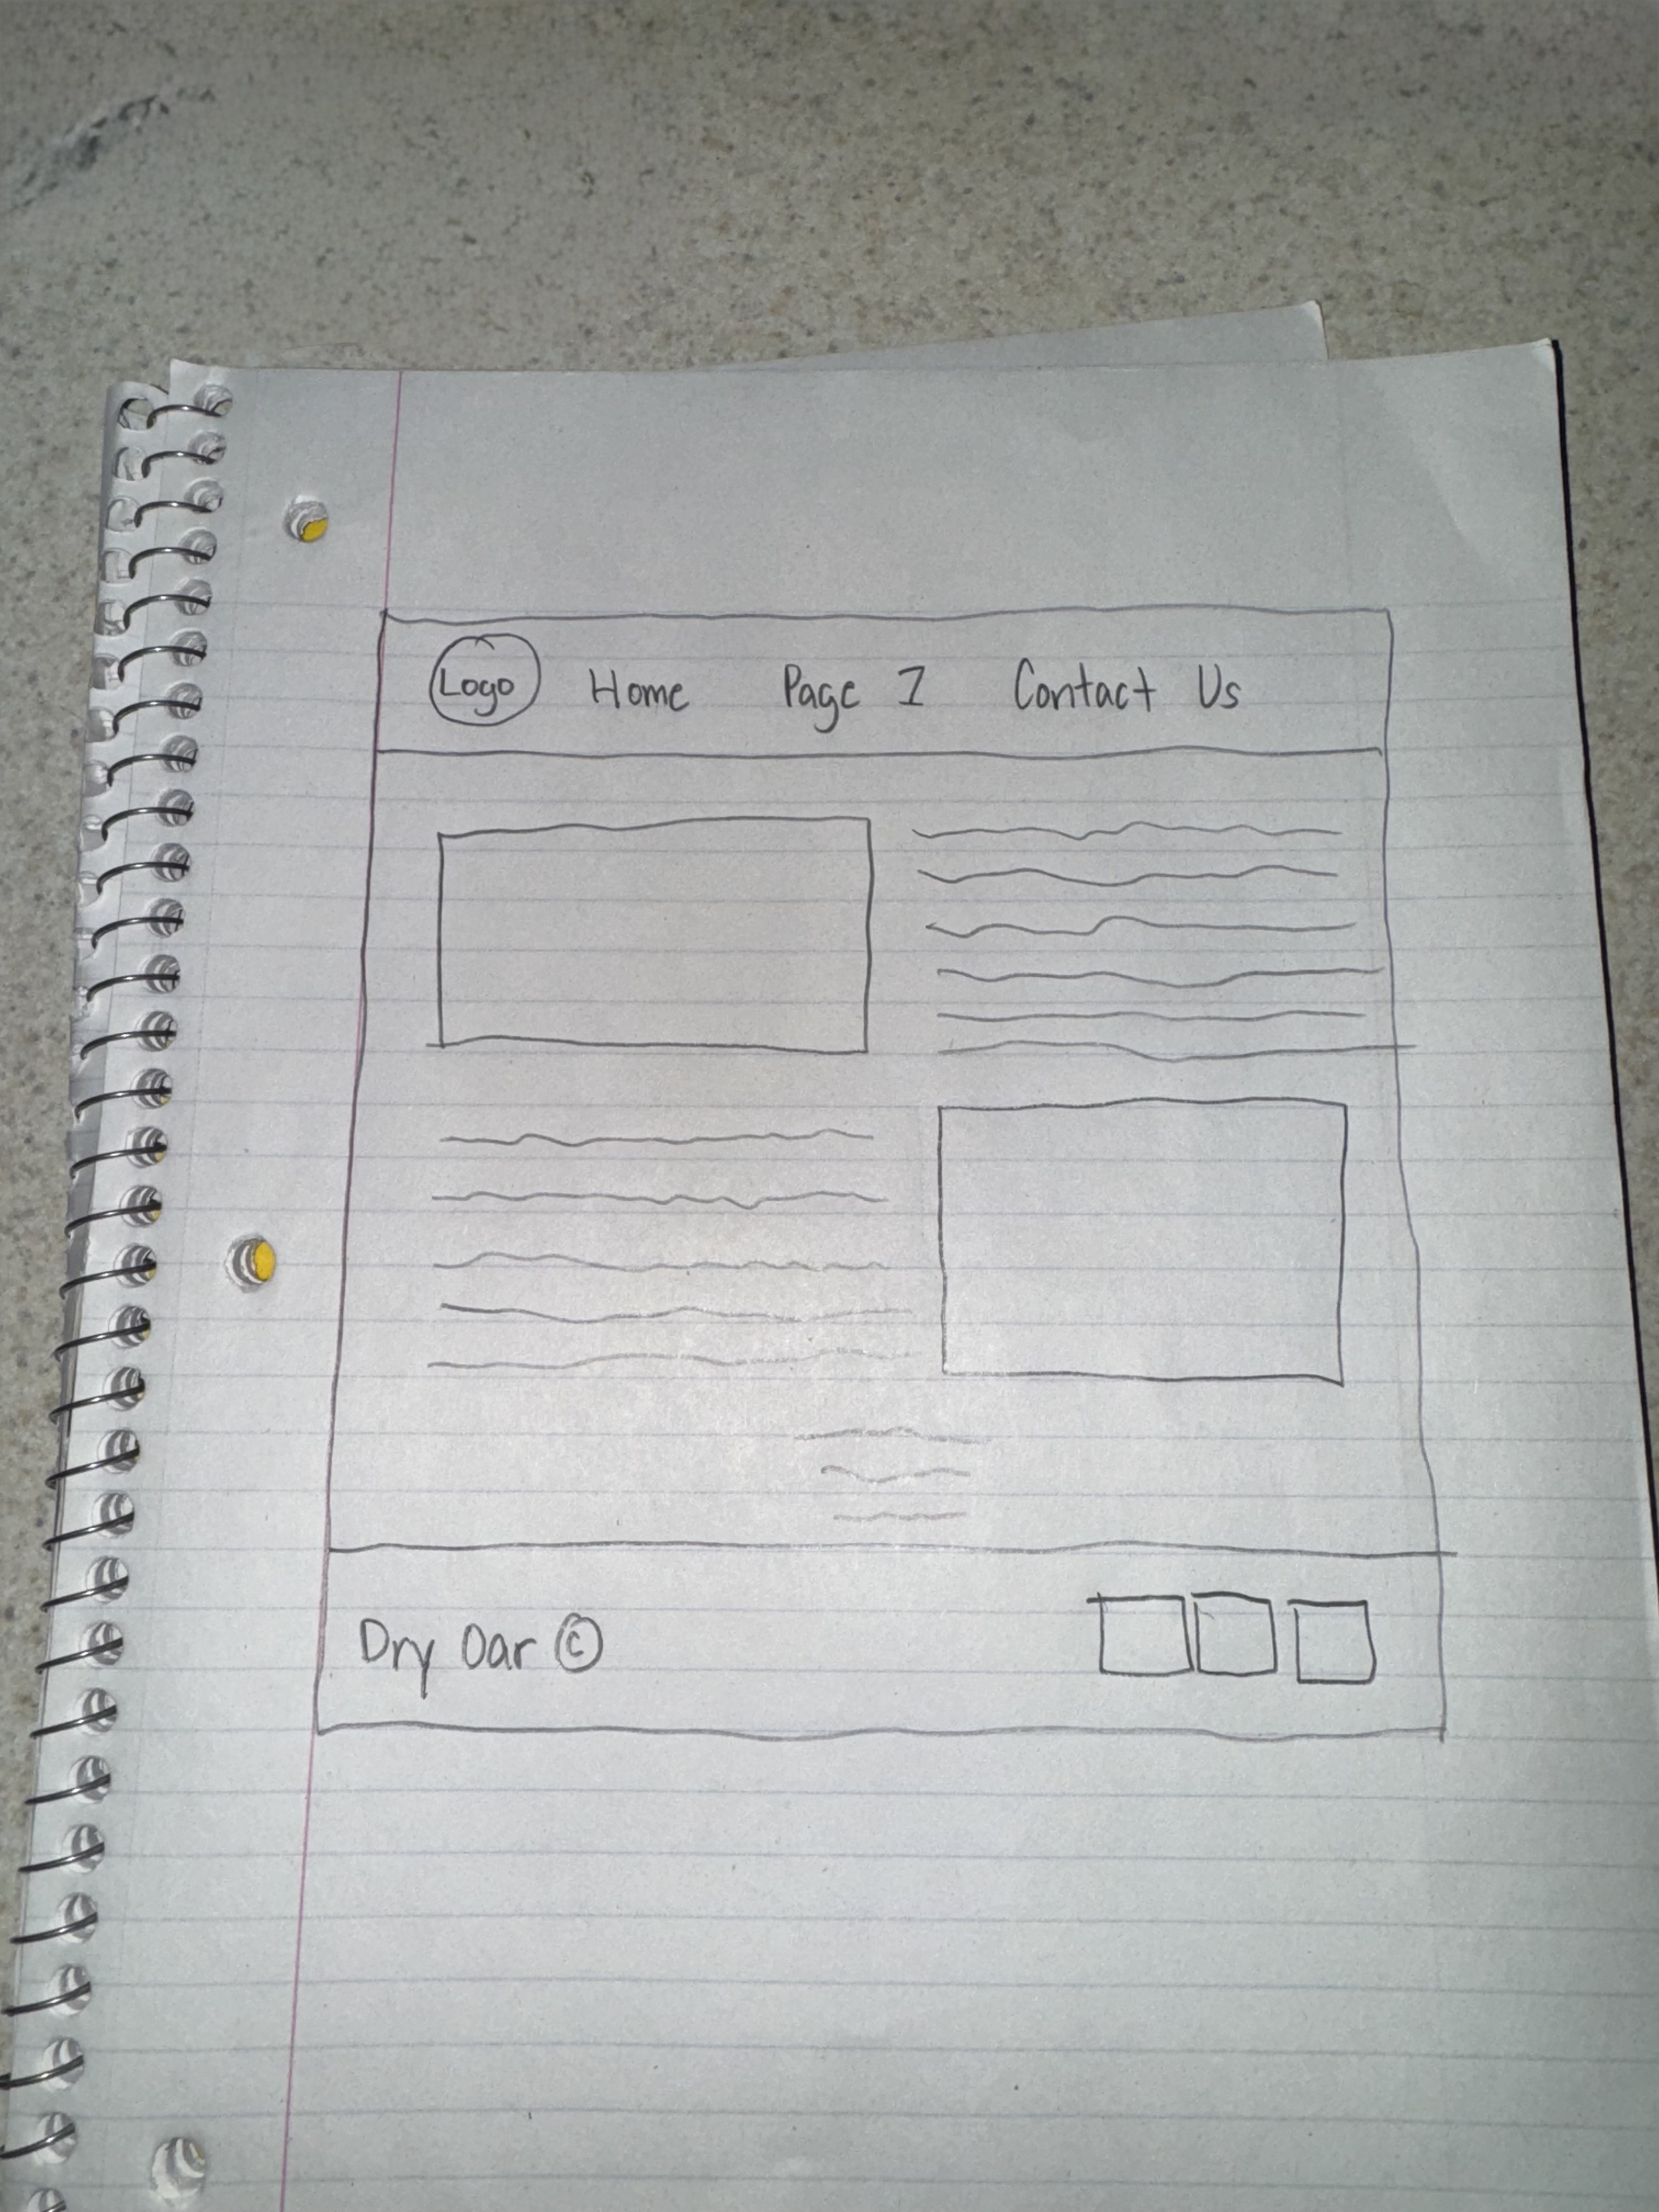 Logo Home Page 1 Contact Us
Dry Oar ©